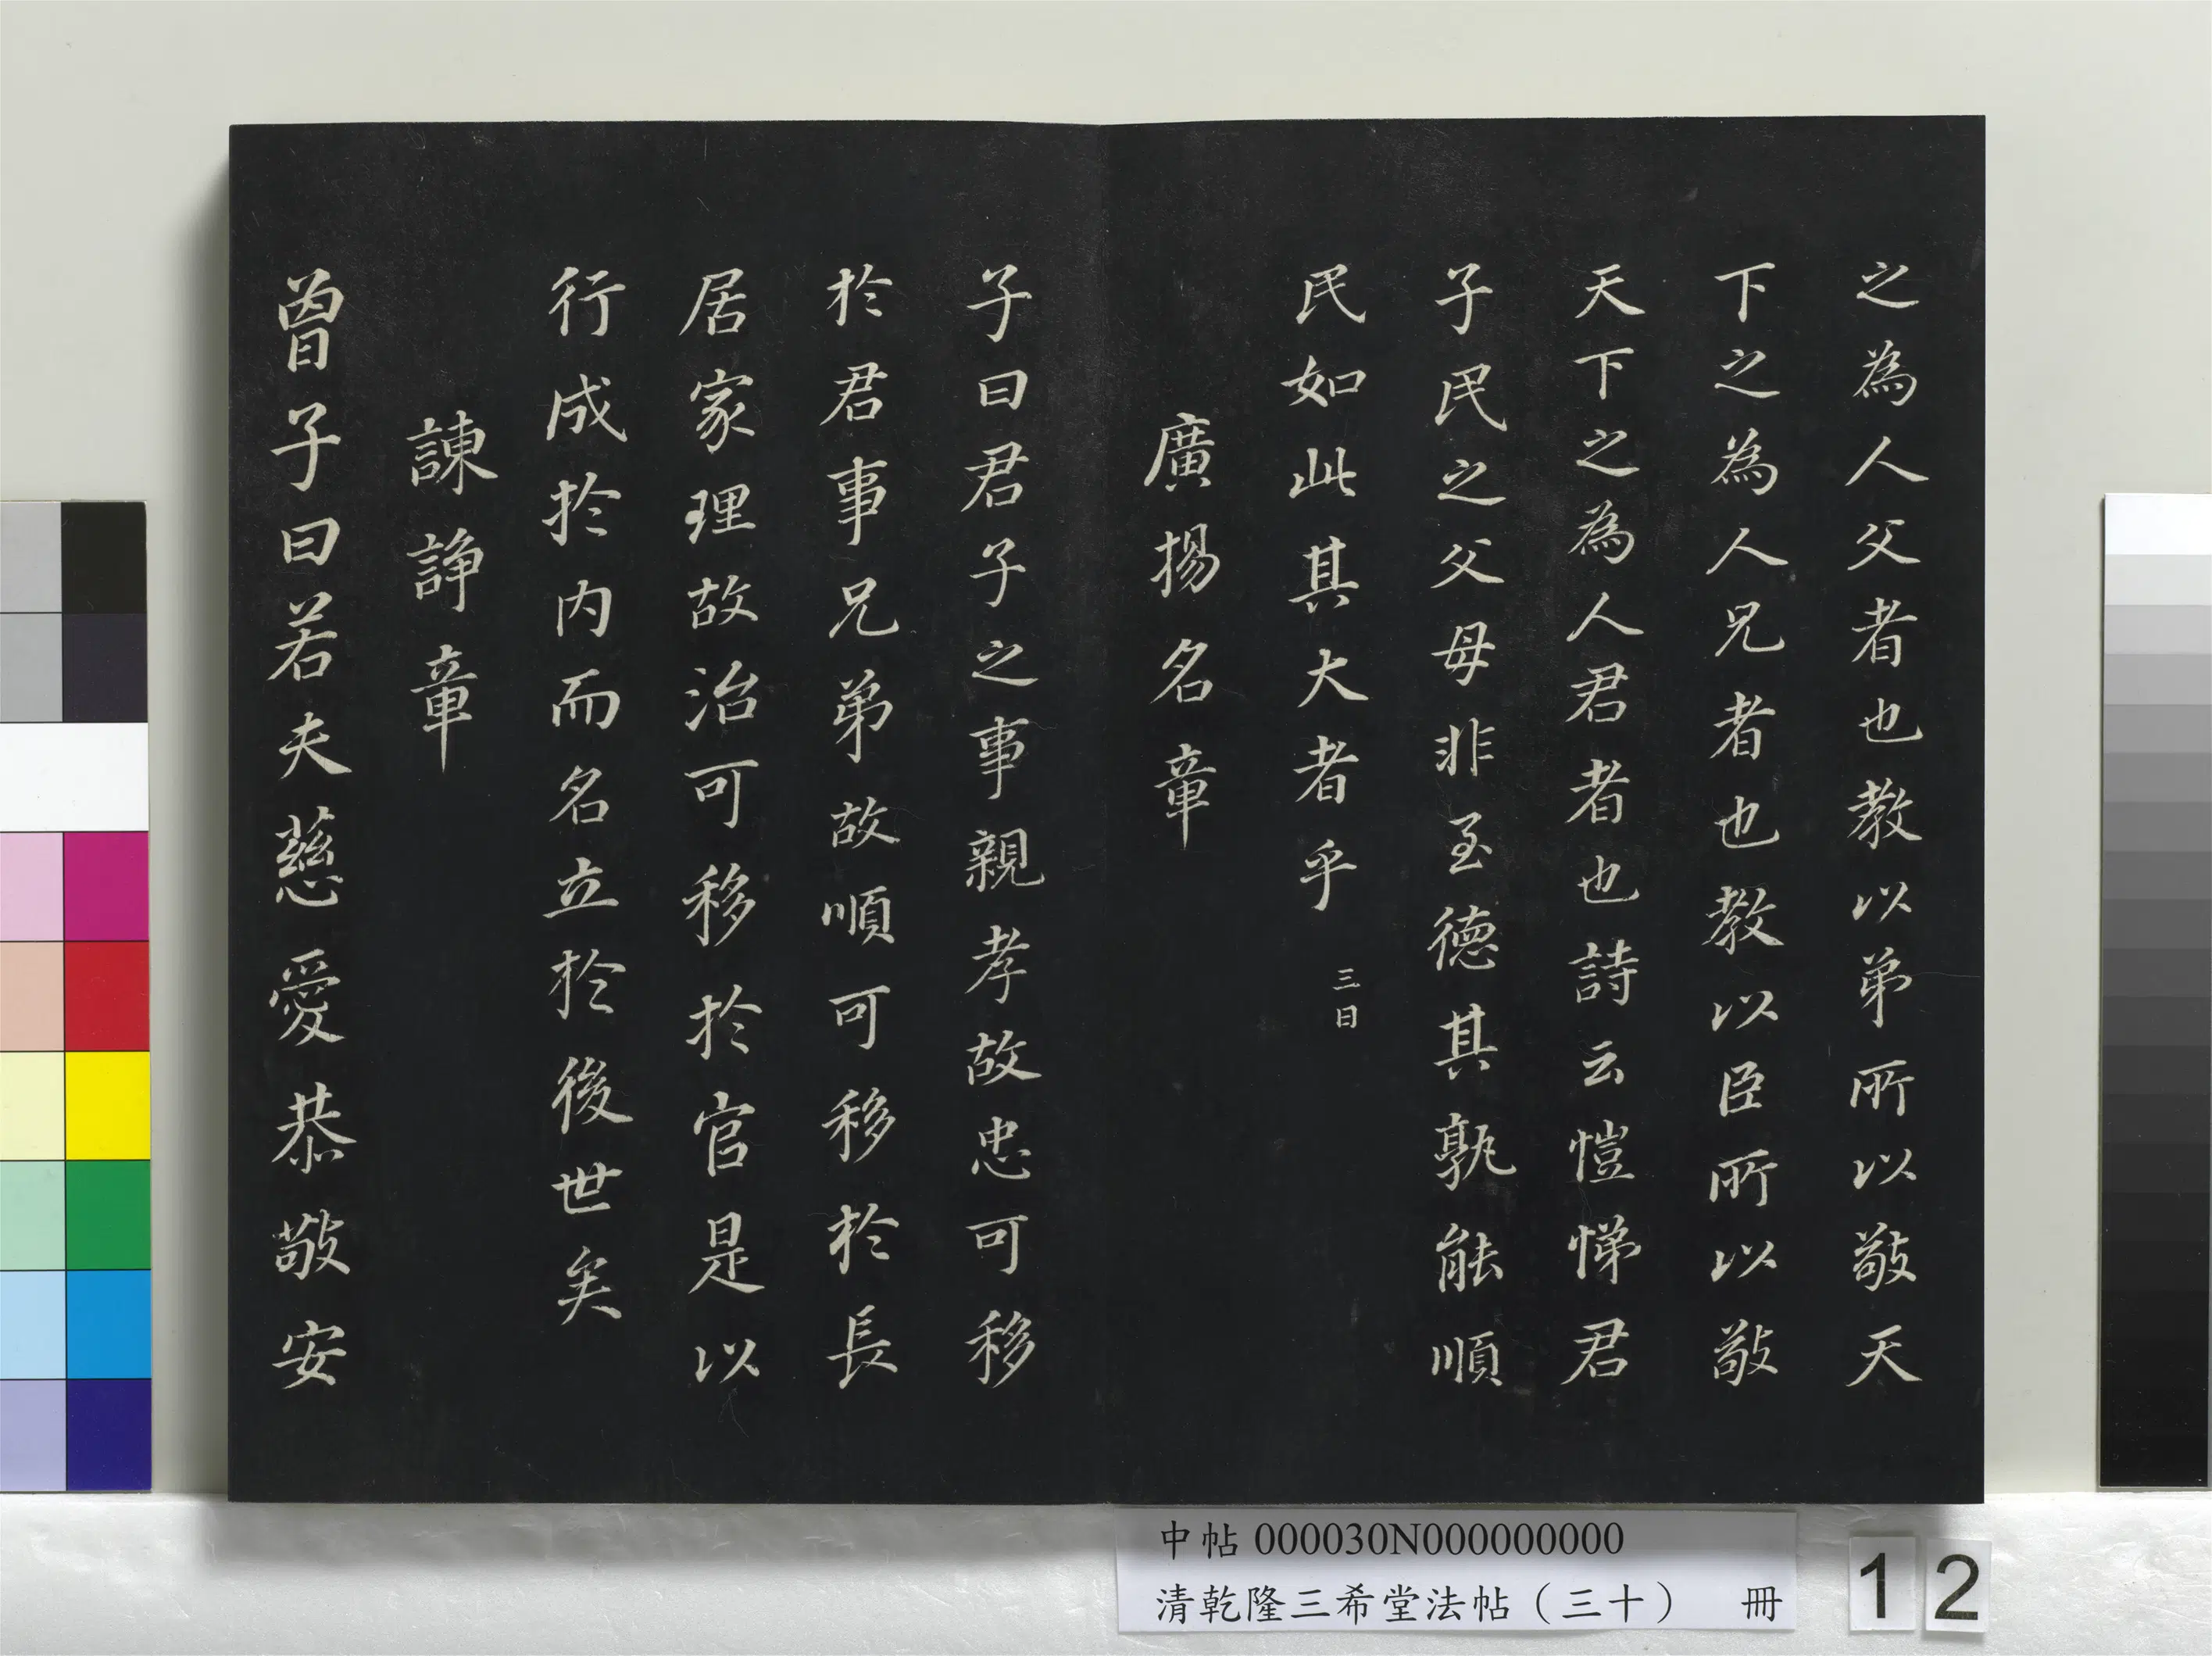 之為人父者也教以弟所以敬天
下之為人兄者也教以臣所以敬
天下之為人君者也詩云愷悌君
子民之父母非至德其孰能順
民如此其大者乎
三日
廣揚名章
子曰君子之事親孝故忠可移
於君事兄弟故順可移於長
居家理故治可移於官是以
行成於内而名立於後世矣
諫諍章
曾子曰若夫慈愛恭敬安
中帖000030N000000000
清乾隆三希堂法帖（三十） 冊
12